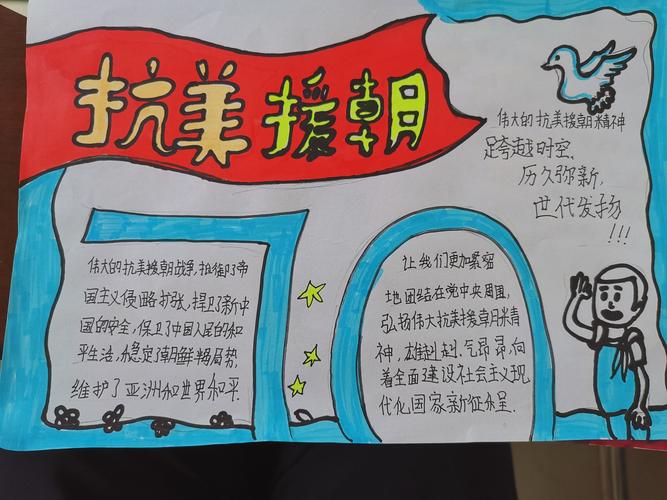 抗美援朝
伟大的抗美援朝精神
跨越时空,
历久弥新,
世代发扬
!!!
伟大的抗美援朝战争,抵御了帝
国主义侵略扩张,捍卫了新中
国的安全,保卫了中国人民的和
平生活,稳定了朝鲜半岛局势,
维护了亚洲和世界和平.
让我们更加紧密
地团结在党中央周围,
弘扬伟大抗美援朝精
神,雄赳赳.气昂昂,向
着全面建设社会主义现
代化国家新征程.